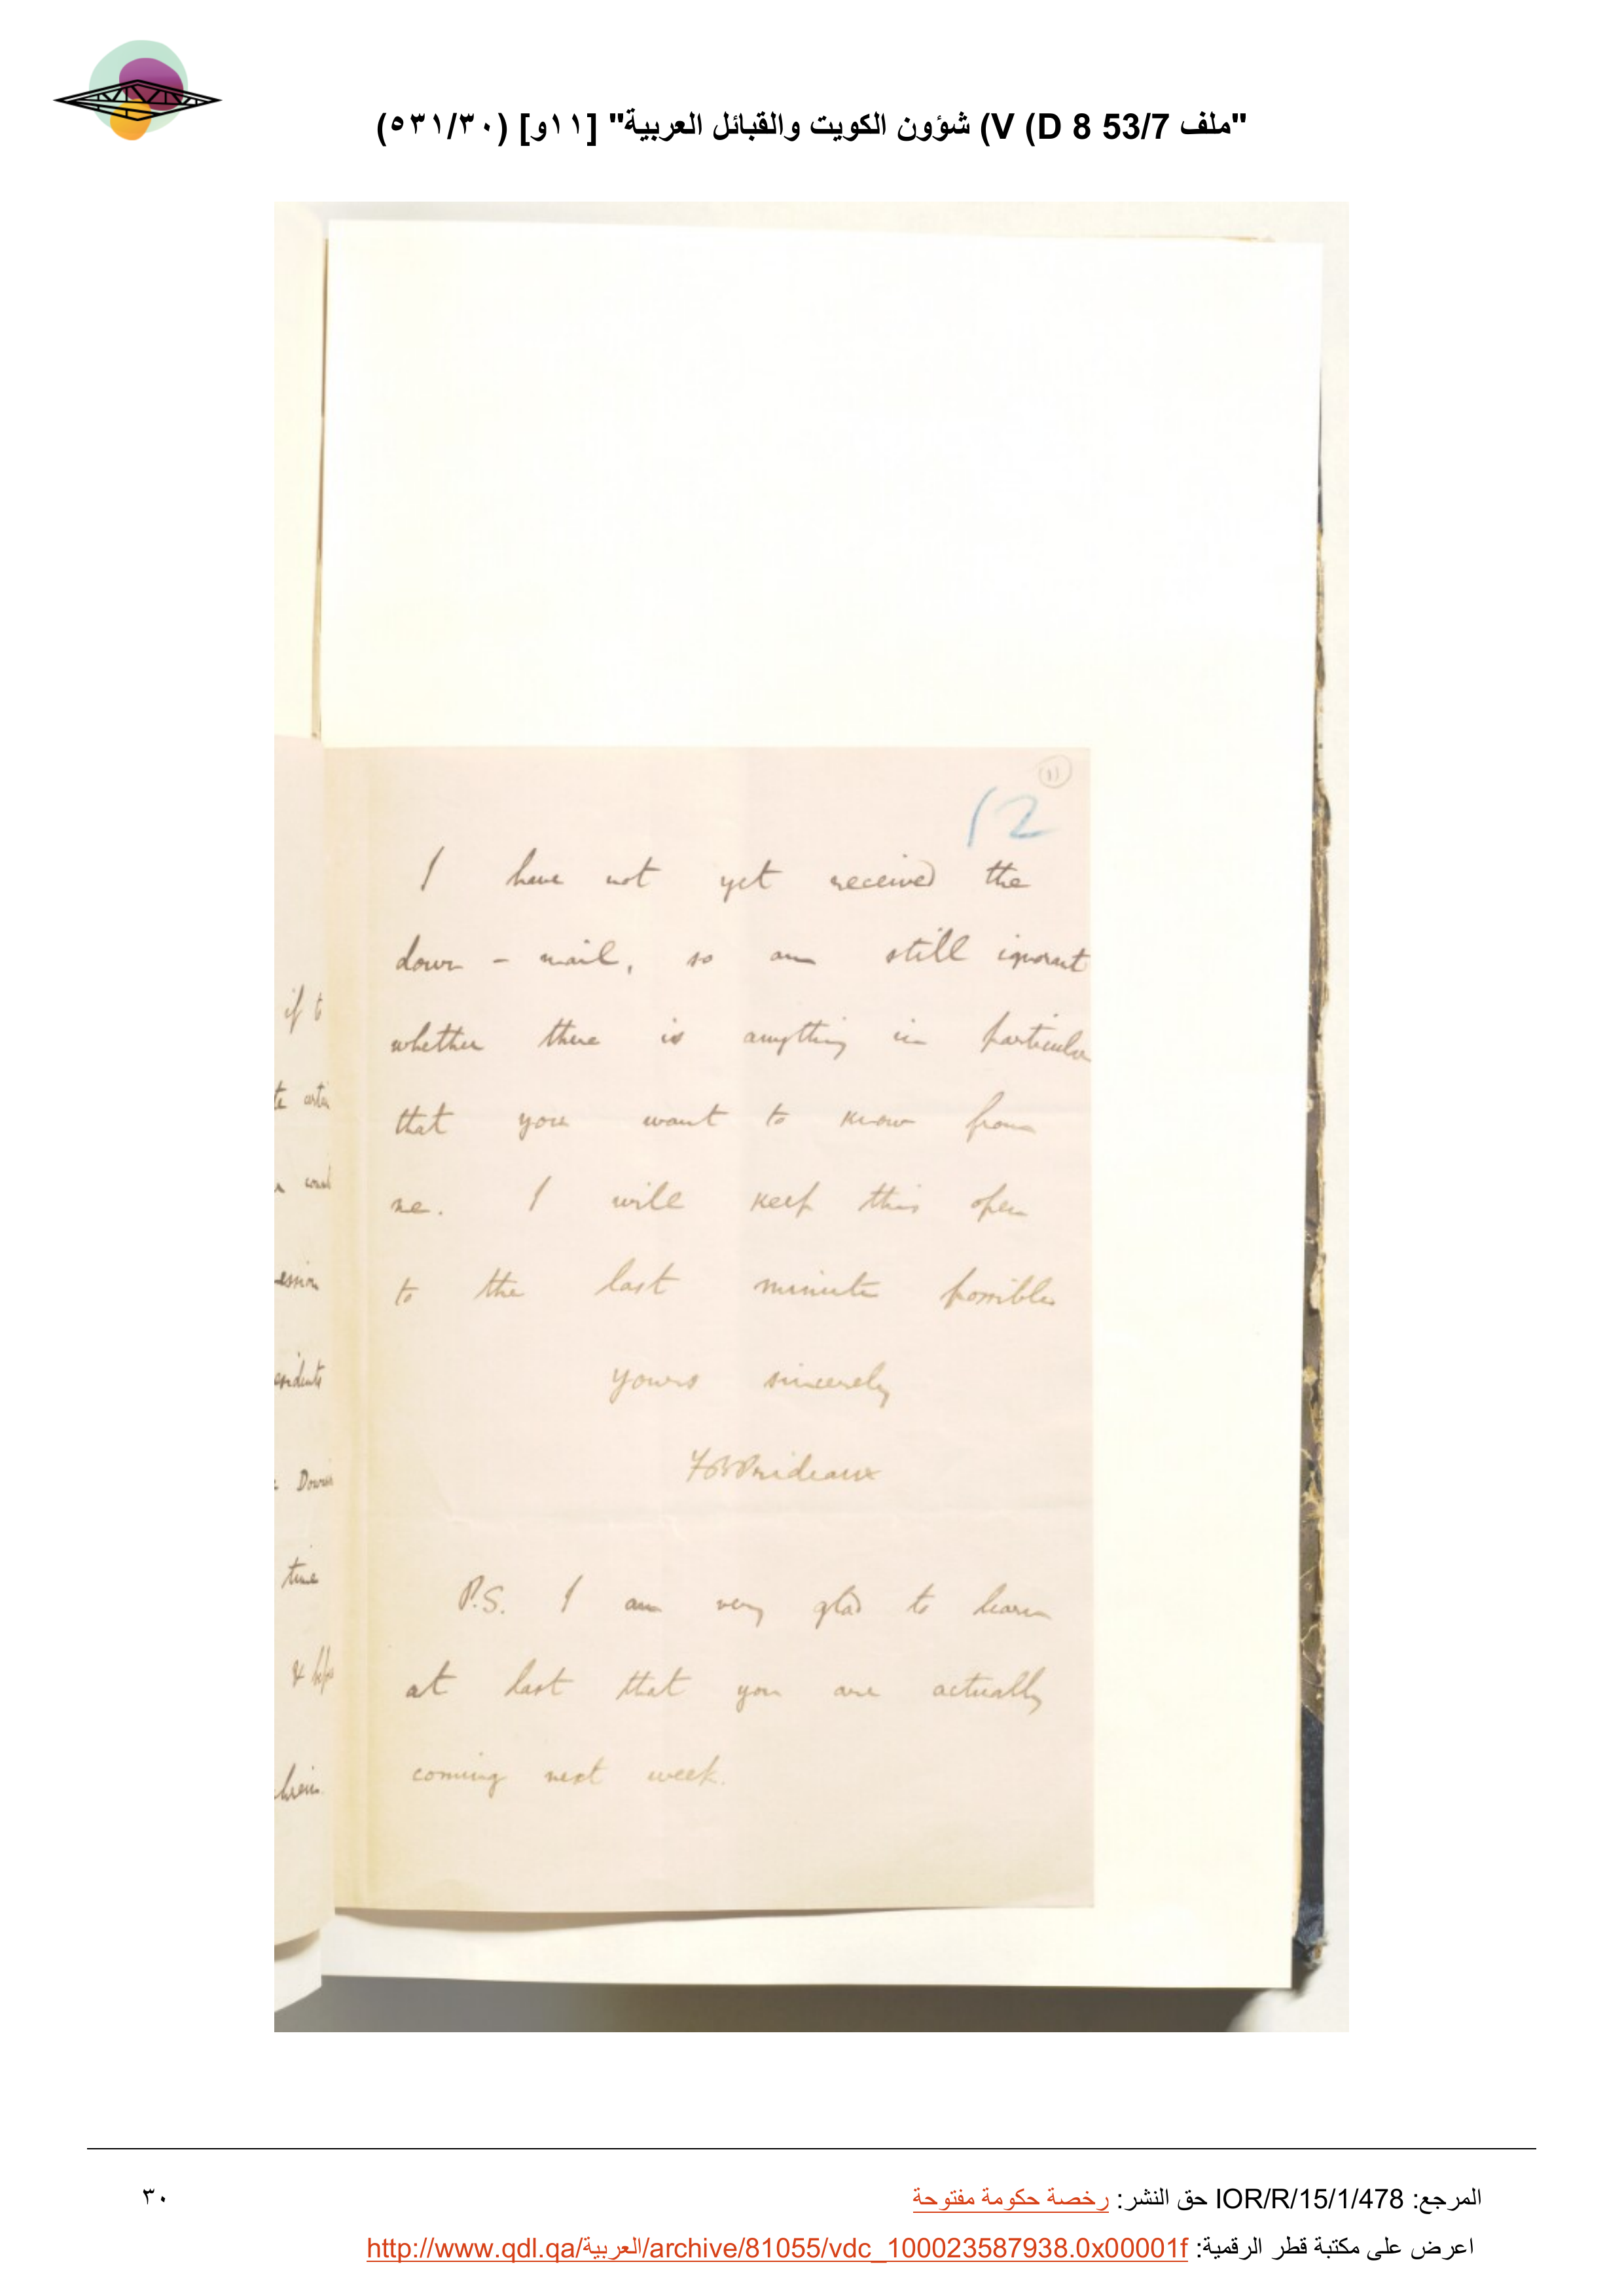 "ملف 53/7 D 8) V) شؤون الكويت والقبائل العربية" [١١و] (٥٣١/٣٠)
11
12
I have not yet received the
down - mail, so am still ignorant
whether there is anything in particular
that you want to know from
me. I will keep this open
to the last minute possible
yours sincerely
FBPrideaux
P.S. I am very glad to learn
at last that you are actually
coming next week.
if to
time
المرجع: IOR/R/15/1/478 حق النشر: رخصة حكومة مفتوحة
٣٠
اعرض على مكتبة قطر الرقمية: http://www.qdl.qa/العربية/archive/81055/vdc_100023587938.0x00001f